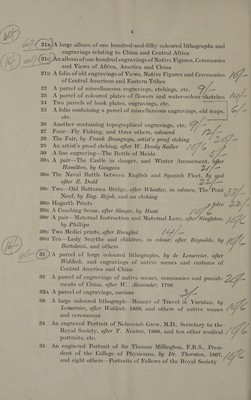 4
21B A large album of one hundred-and-fifty coloured lithographs and
engravings relating to China and Central Africa
21C An album of one hundred engravings of Native Figures, Ceremonies
and Views of Africa, America and China
21D A folio of old engravings of Views, Native Figures and Ceremonies
of Central American and Eastern Tribes
22 A parcel of miscellaneous engravings, etchings, etc.
23 A parcel of coloured plates of flowers and water-colour sketches
24 Two parcels of book plates, engravings, etc.
25 A folio containing a parcel of miscellaneous engravings, old maps,
etc.
26 Another containing topographical engravings, etc.
27 Four—Fly Fishing, and three others, coloured
28 The Fair, by Frank Brangwyn, artist's proof etching
29 An artist's proof etching, after W. Dendy Sadler
30 A line engraving—The Battle of Maida
30A A pair—The Castle in danger, and Winter Amusement, after
Hamilton, by Gaugain
30B The Naval Battle between English and Spanish Fleet, by and
after R. Dodd
30C Two—Old Battersea Bridge, after Whistler, in colours, The Pont
Neuf, by Eug. Bejot, and an etching
30D Hogarth Prints folio
30E A Coaching Scene, after Shayer, by Hunt
30F A pair—Maternal Instruction and Maternal Love, after Singleton,
by Phillips
30G Two Medici prints, after Breughel
30H Ten—Lady Smythe and children, in colour, after Reynolds, by
Bartolozzi, and others
31 A parcel of large coloured lithographs, by de Lemercier, after
Waldeck, and engravings of native scenes and customs of
Central America and China
32 A parcel of engravings of native scenes, ceremonies and punish-
ments of China, after W. Alexander, 1798
32A A parcel of engravings, various
33 A large coloured lithograph—Manner of Travel in Yucatan, by
Lemercier, after Waldeck, 1838, and others of native scenes
and ceremonies
34 An engraved Portrait of Nehemiah Grew, M.D., Secretary to the
Royal Society, after T. Nenton, 1800, and ten other medical
portraits, etc.
35 An engraved Portrait of Sir Thomas Millington, F.R.S., Presi-
dent of the College of Physicians, by Dr. Thornton, 1807,
and eight others—Portraits of Fellows of the Royal Society